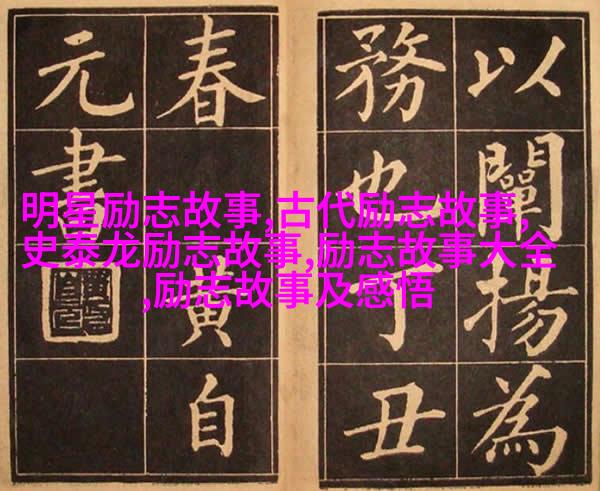 明星励志故事,古代励志故事,
史泰龙励志故事,励志故事大全
,励志故事及感悟
以闡揚為
務也丁丑
春黃自
元書